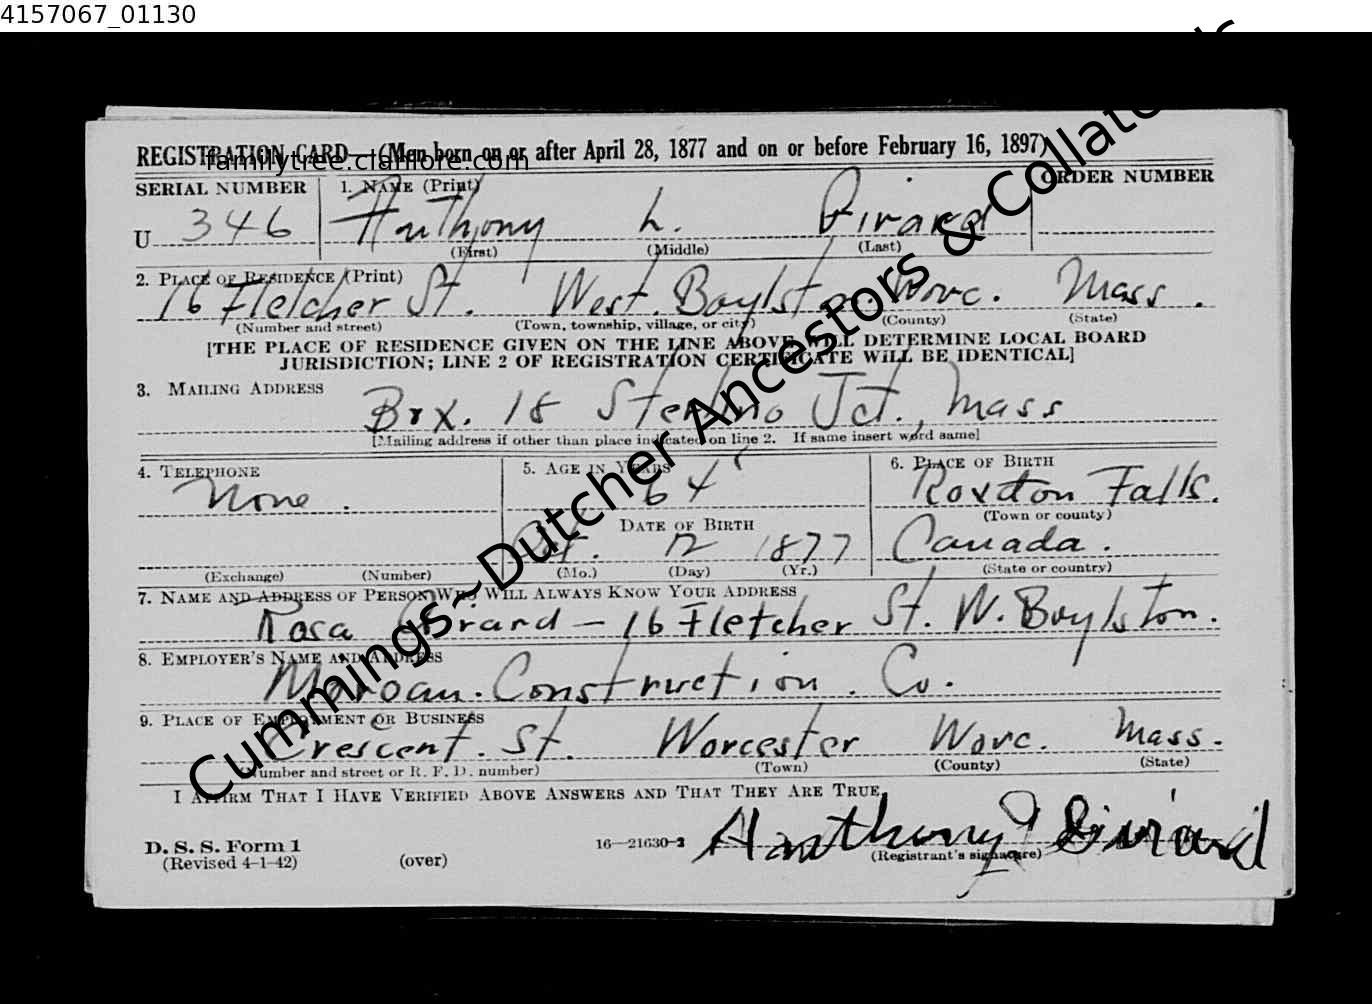 4157067_01130
REGISTRATION CARD—(Men born on or after April 28, 1877 and on or before February 16, 1897)
familytree.clanfiore.com
SERIAL NUMBER 1. NAME (Print) ORDER NUMBER
U 346 Anthony L. Girard
(First) (Middle) (Last)
2. PLACE OF RESIDENCE (Print)
16 Fletcher St. West. Boylston. Worc. Mass.
(Number and street) (Town, township, village, or city) (County) (State)
[THE PLACE OF RESIDENCE GIVEN ON THE LINE ABOVE WILL DETERMINE LOCAL BOARD
JURISDICTION; LINE 2 OF REGISTRATION CERTIFICATE WILL BE IDENTICAL]
3. MAILING ADDRESS
Box. 18 Sterling Jct., Mass
[Mailing address if other than place indicated on line 2. If same insert word same]
4. TELEPHONE 5. AGE IN YEARS 6. PLACE OF BIRTH
None. 64 Roxton Falls.
DATE OF BIRTH (Town or county)
12 1877 Canada.
(Exchange) (Number) (Mo.) (Day) (Yr.) (State or country)
7. NAME AND ADDRESS OF PERSON WHO WILL ALWAYS KNOW YOUR ADDRESS
Rosa Girard — 16 Fletcher St. W. Boylston.
8. EMPLOYER'S NAME AND ADDRESS
Construction. Co.
9. PLACE OF EMPLOYMENT OR BUSINESS
Crescent. St. Worcester Worc. Mass.
(Number and street or R. F. D. number) (Town) (County) (State)
I AFFIRM THAT I HAVE VERIFIED ABOVE ANSWERS AND THAT THEY ARE TRUE.
D. S. S. Form 1
(Revised 4-1-42) (over) 16—21630-2 Anthony L Girard
(Registrant's signature)
Cummings~Dutcher Ancestors & Collaterals